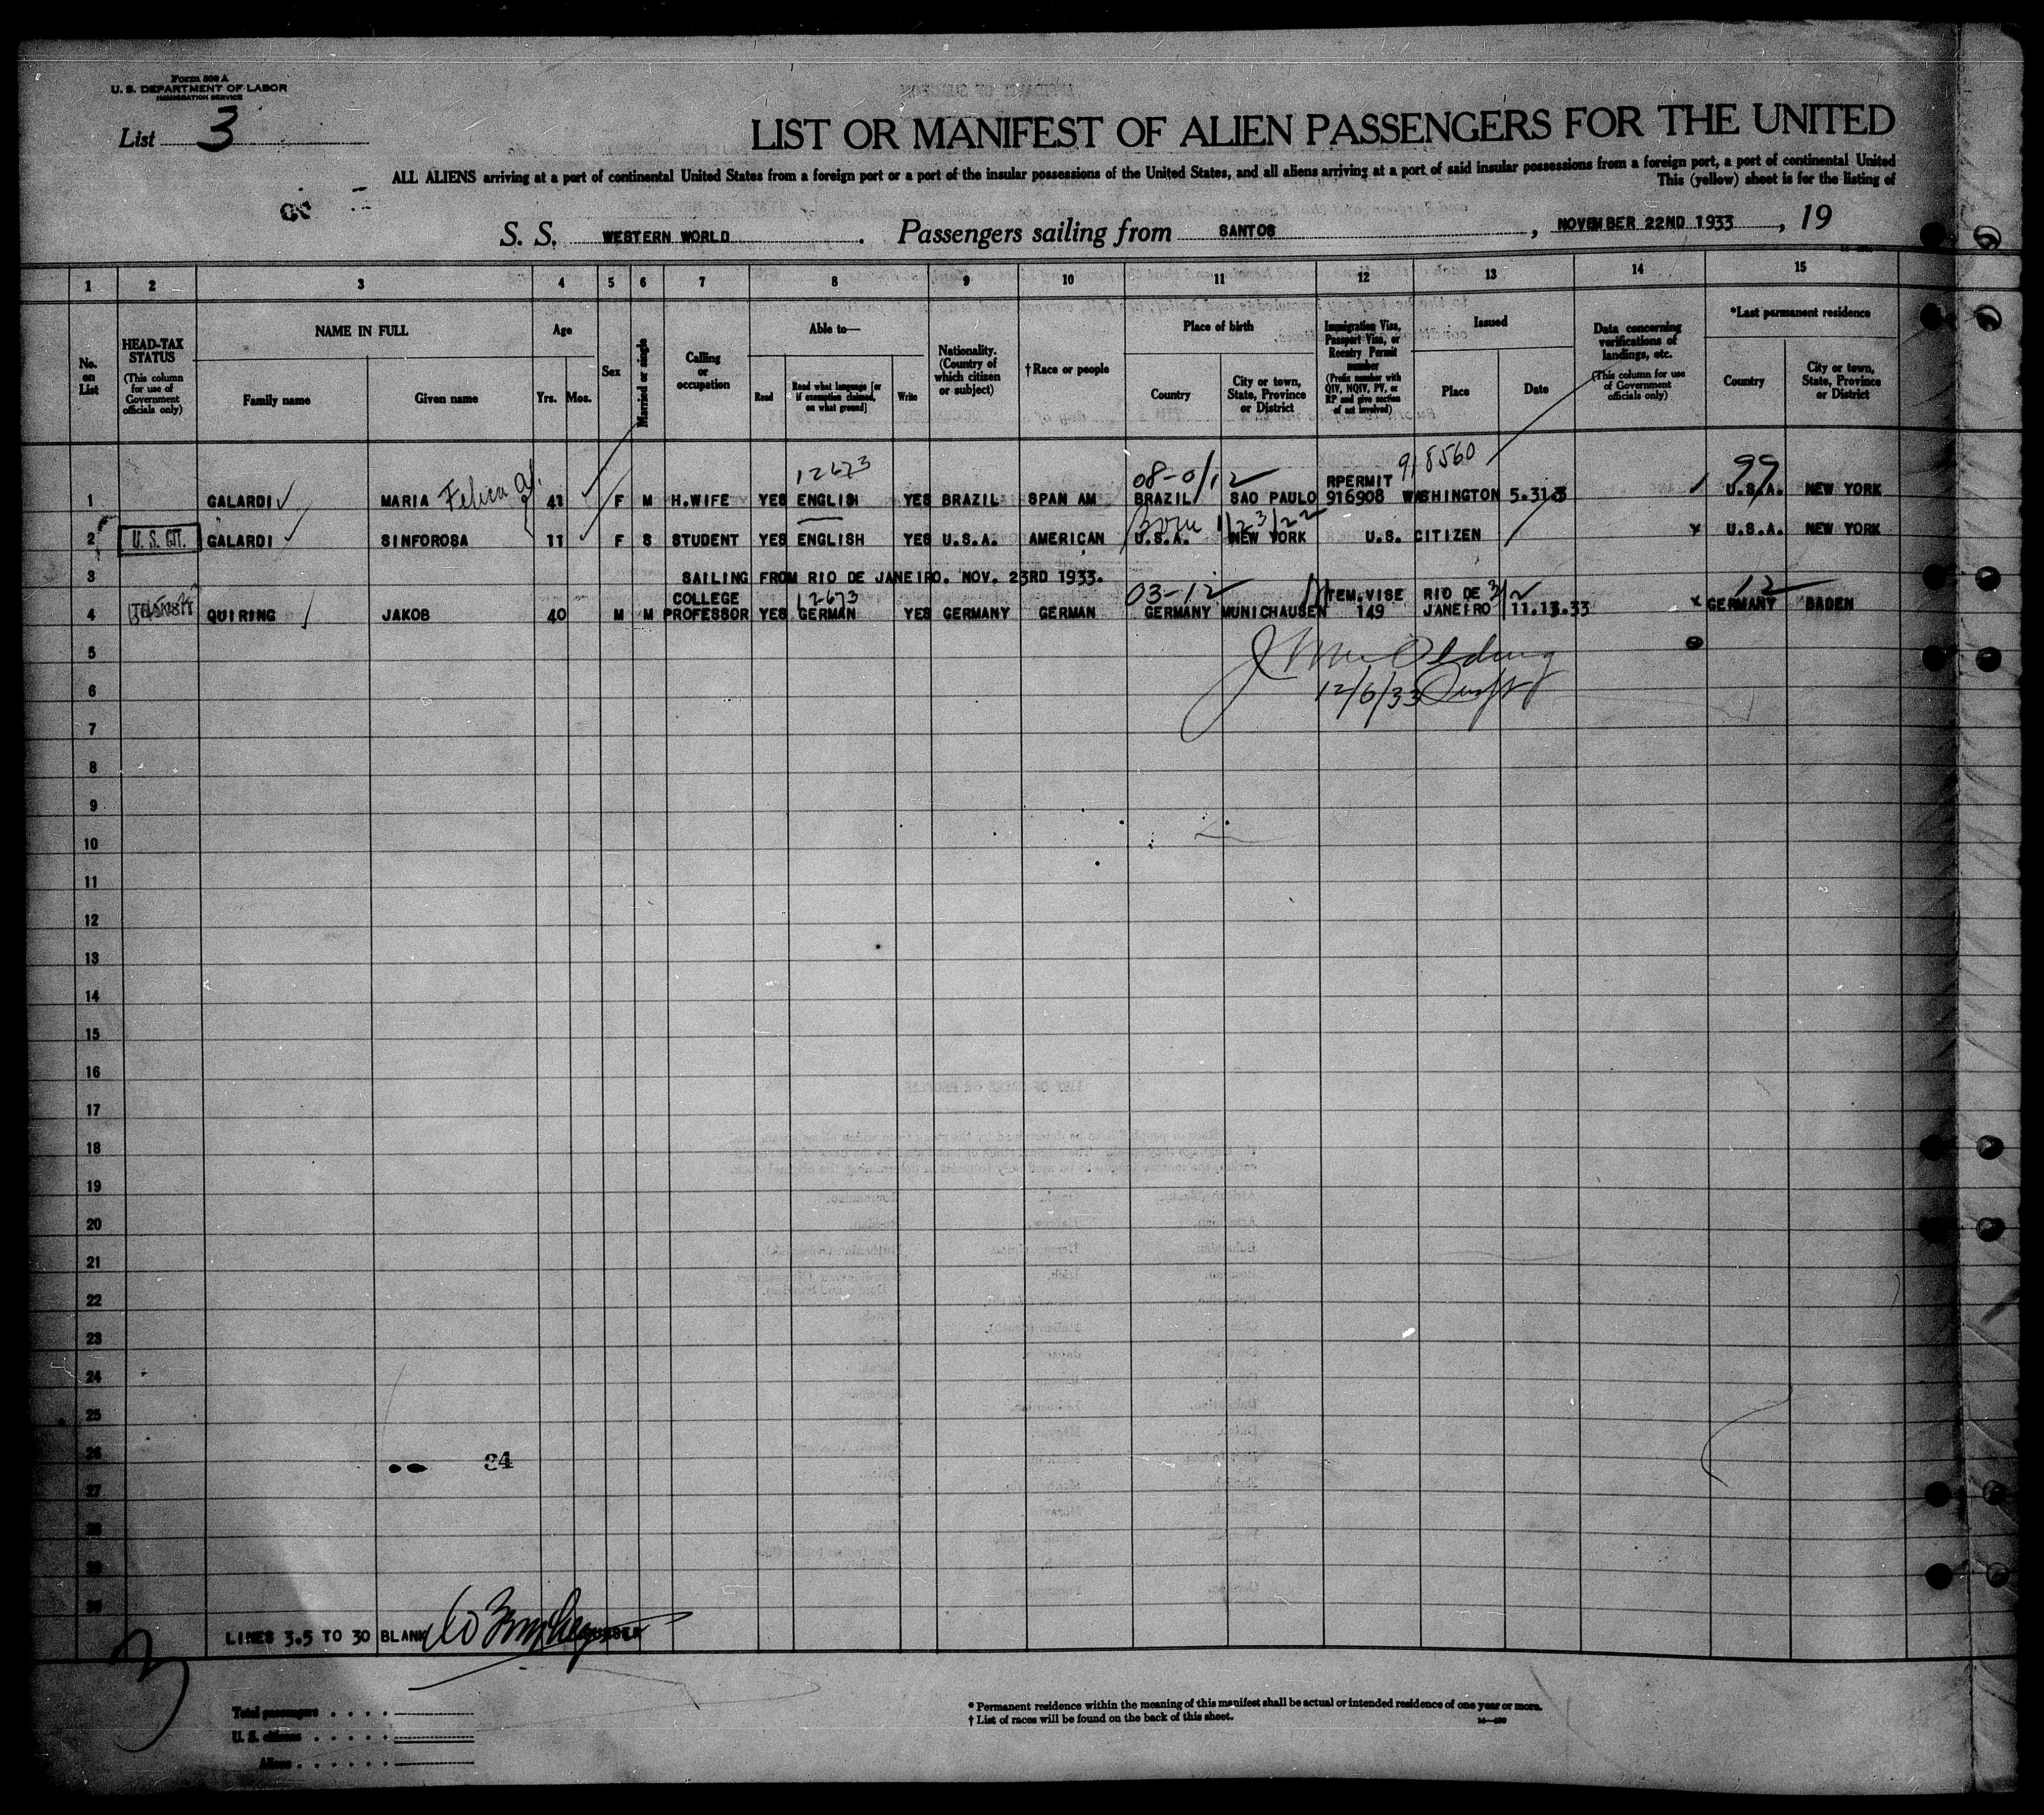 Form 500 A
U. S. DEPARTMENT OF LABOR
IMMIGRATION SERVICE
List 3
LIST OR MANIFEST OF ALIEN PASSENGERS FOR THE UNITED
ALL ALIENS arriving at a port of continental United States from a foreign port or a port of the insular possessions of the United States, and all aliens arriving at a port of said insular possessions from a foreign port, a port of continental United
This (yellow) sheet is for the listing of
S. S. WESTERN WORLD. Passengers sailing from SANTOS, NOVEMBER 22ND 1933, 19
1 2 3 4 5 6 7 8 9 10 11 12 13 14 15
No. on List
HEAD-TAX STATUS (This column for use of Government officials only)
NAME IN FULL
Family name Given name
Age
Yrs. Mos.
Sex
Married or single
Calling or occupation
Able to—
Read Read what language [or if exemption claimed, on what ground] Write
Nationality. (Country of which citizen or subject)
†Race or people
Place of birth
Country City or town, State, Province or District
Immigration Visa, Passport Visa, or Reentry Permit number (Prefix number with QIV, NQIV, PV, or RP and give section of act involved)
Issued
Place Date
Data concerning verifications of landings, etc. (This column for use of Government officials only)
*Last permanent residence
Country City or town, State, Province or District
12673 08-0/12 918560 99
1 GALARDI MARIA Felica 41 F M H.WIFE YES ENGLISH YES BRAZIL SPAN AM BRAZIL SAO PAULO RPERMIT 916908 WASHINGTON 5.31.3 U.S.A. NEW YORK
Born 1/23/22
2 U. S. CIT. GALARDI SINFOROSA 11 F S STUDENT YES ENGLISH YES U.S.A. AMERICAN U.S.A. NEW YORK U.S. CITIZEN U.S.A. NEW YORK
3 SAILING FROM RIO DE JANEIRO. NOV. 23RD 1933.
12673 03-12 12
4 TRANSIT QUIRING JAKOB 40 M M COLLEGE PROFESSOR YES GERMAN YES GERMANY GERMAN GERMANY MUNICHAUSEN TEM.VISE 149 RIO DE JANEIRO 11.13.33 GERMANY BADEN
5
6 12/6/33
7
8
9
10
11
12
13
14
15
16
17
18
19
20
21
22
23
24
25
26 84
27
28
29
30
LINES 3.5 TO 30 BLANK
3
Total passengers
U. S. citizens
Aliens
* Permanent residence within the meaning of this manifest shall be actual or intended residence of one year or more.
† List of races will be found on the back of this sheet.